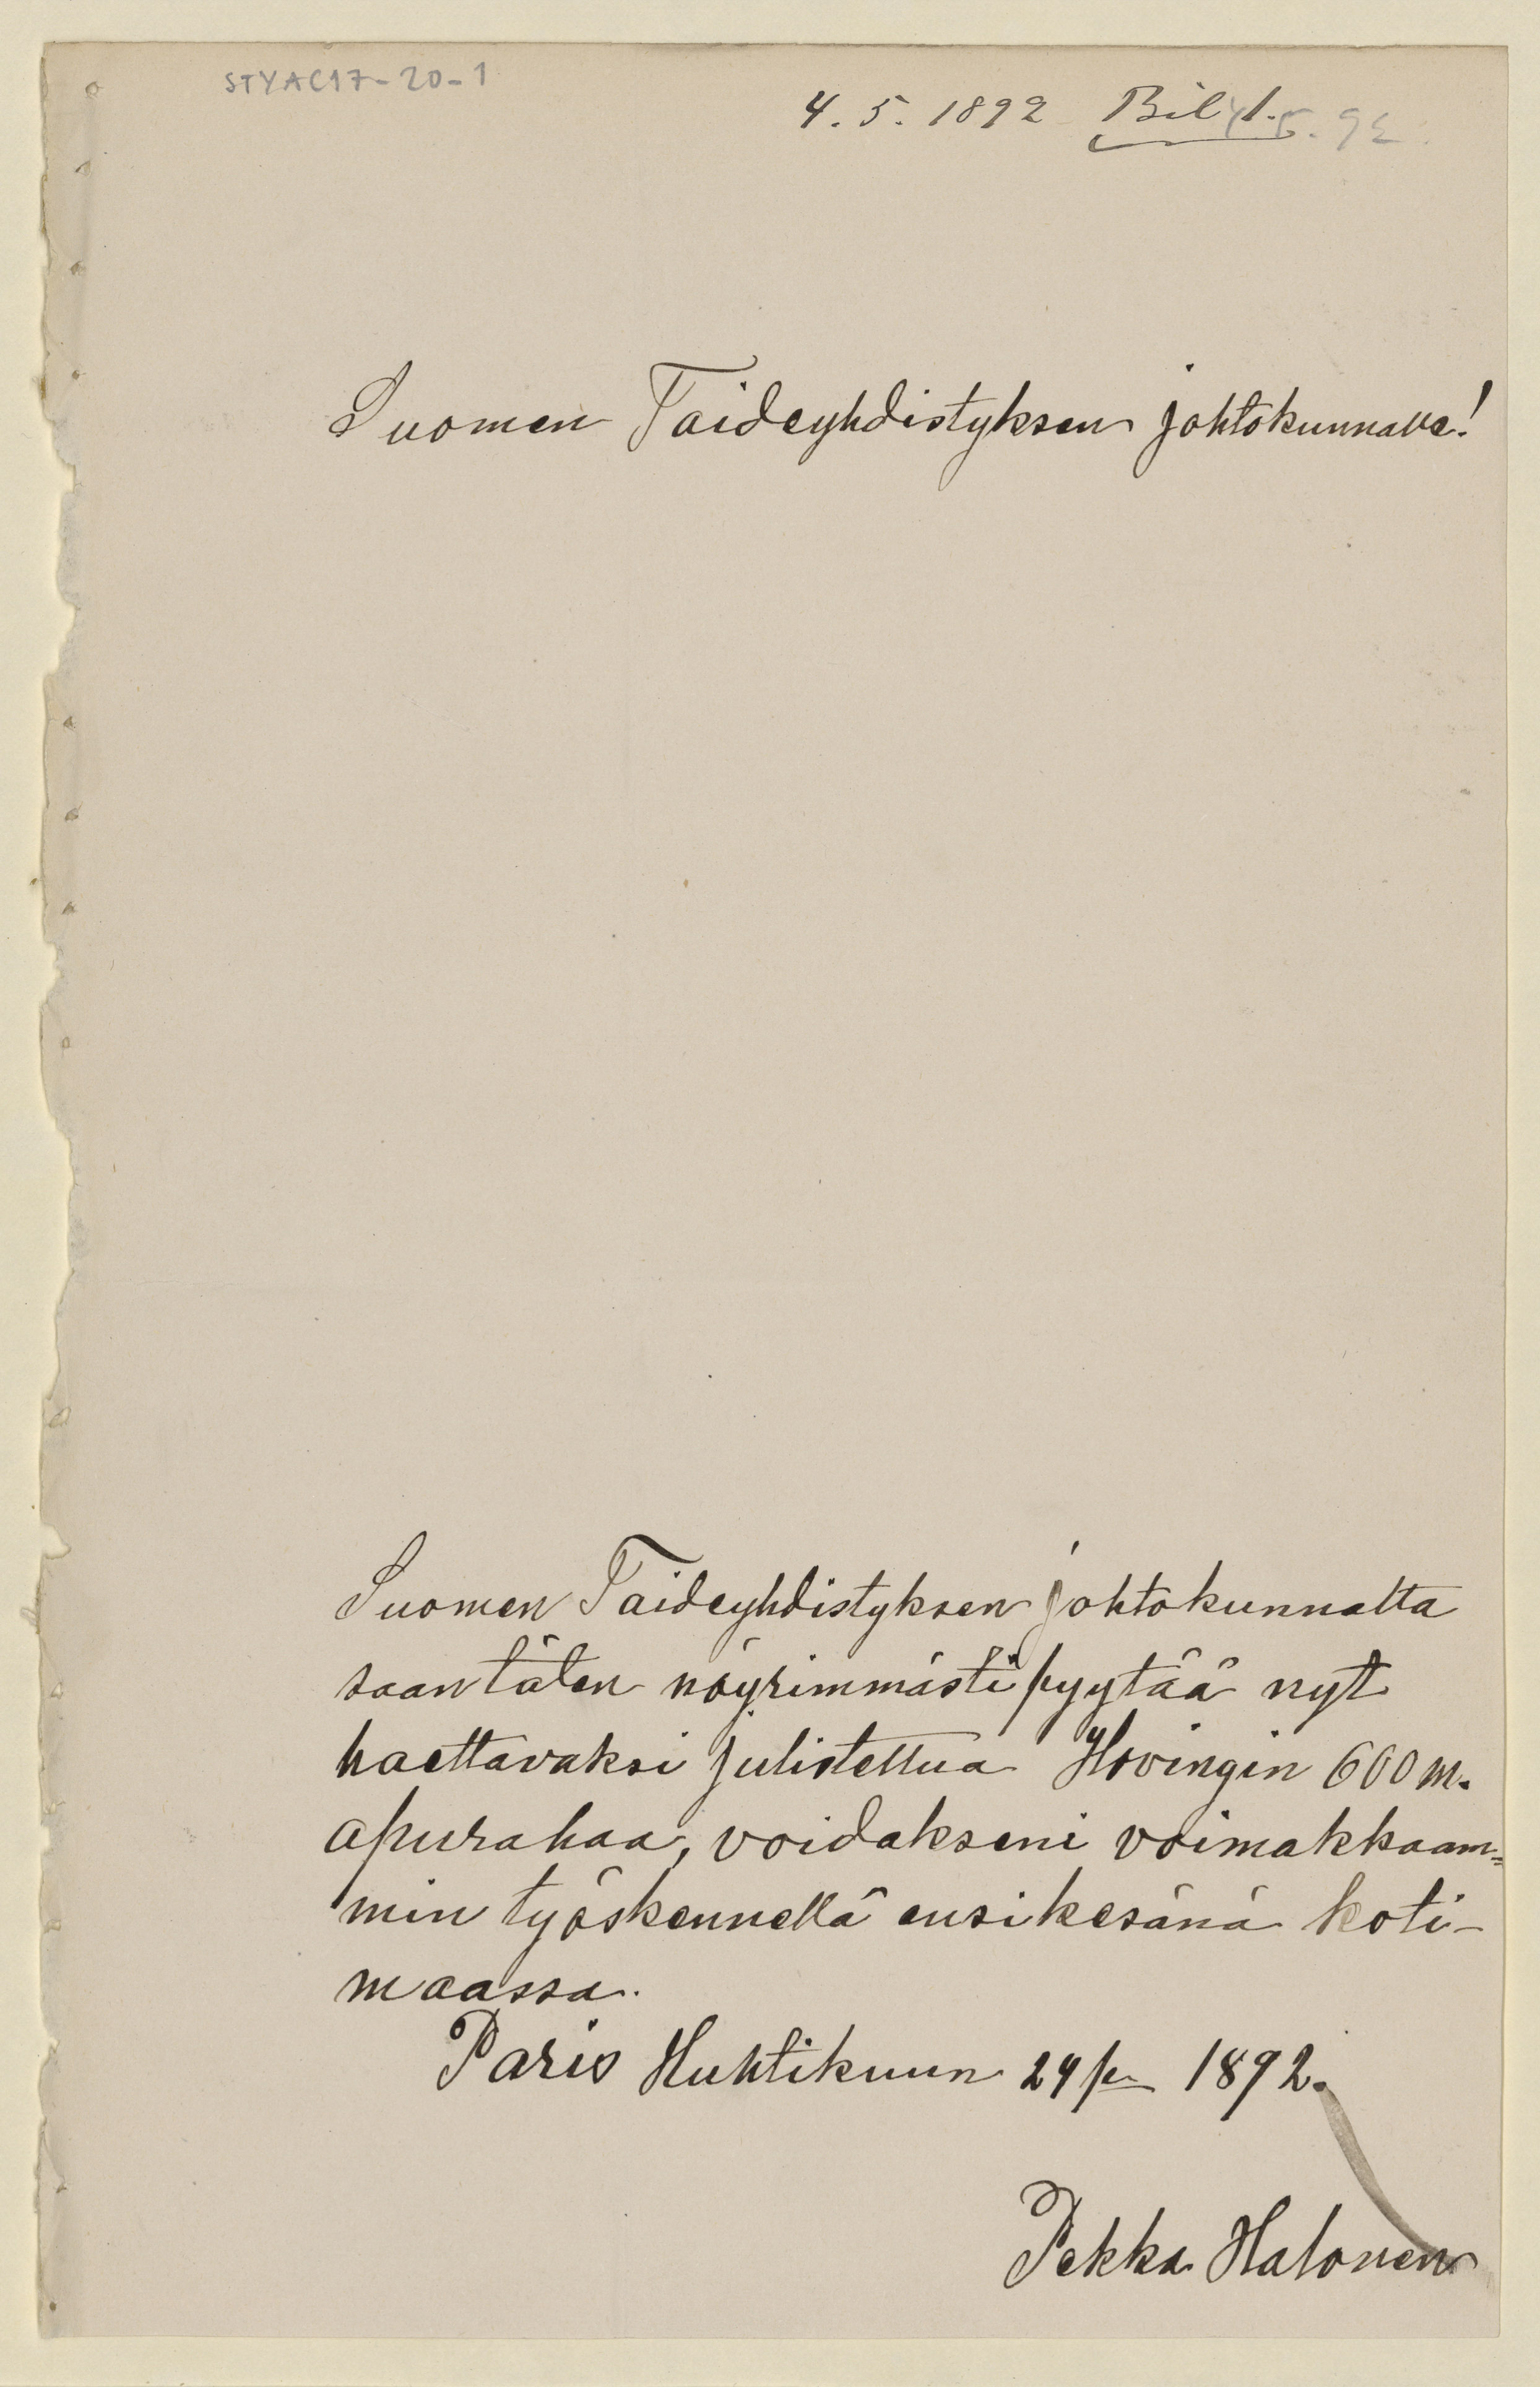 STYAC17-20-1
4. 5. 1892 Bil 1.
4.5.92.
Suomen Taideyhdistyksen johtokunnalle!
Suomen Taideyhdistyksen johtokunnalta
saan täten nöyrimmästi pyytää nyt
haettavaksi julistettua Hovingin 600 m.
apurahaa, voidakseni voimakkaam=
min työskennellä ensikesänä koti-
maassa.
Paris Huhtikuun 24 p. 1892.
Pekka Halonen